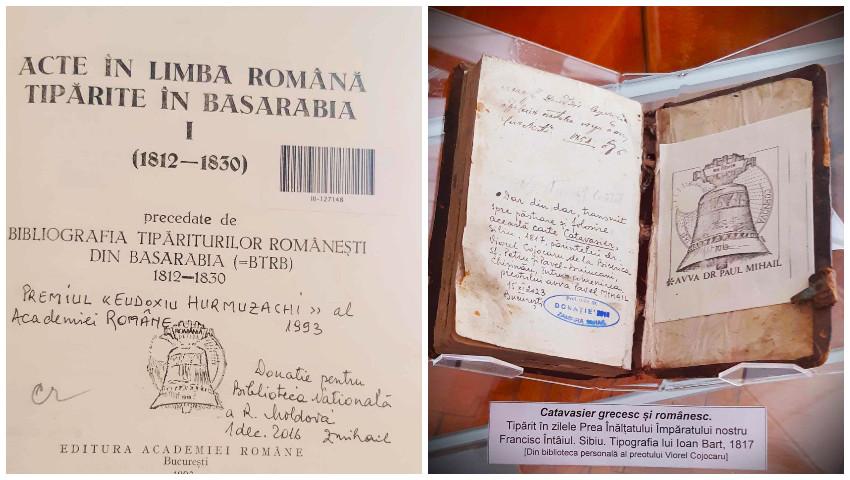 ACTE ÎN LIMBA ROMÂNĂ
TIPĂRITE ÎN BASARABIA
I
(1812—1830)
III-127148
precedate de
BIBLIOGRAFIA TIPĂRITURILOR ROMÂNEȘTI
DIN BASARABIA (=BTRB)
1812—1830
PREMIUL «EUDOXIU HURMUZACHI» al
Academiei ROMÂNE
1993
ROMÂNIA
Donatie pentru
Biblioteca Națională
a R. Moldova
1 dec. 2016 Zmihail
cr
EDITURA ACADEMIEI ROMÂNE
București
• Dar din dar, transmit
spre păstrare și folosire
această carte Catavasier,
Sibiu, 1817, părintelui dr.
Viorel Cojocaru de la Biserica
Sf. Petru și Pavel
Chișinău, întru pomenirea
preotului avva Pavel MIHAIL
15 XI 2023
București
DONAȚIE
ZAMFIRA MIHAIL
AVVA DR PAUL MIHAIL
Catavasier grecesc și românesc.
Tipărit în zilele Prea Înălțatului Împăratului nostru
Francisc Întâiul. Sibiu. Tipografia lui Ioan Bart, 1817
[Din biblioteca personală al preotului Viorel Cojocaru]